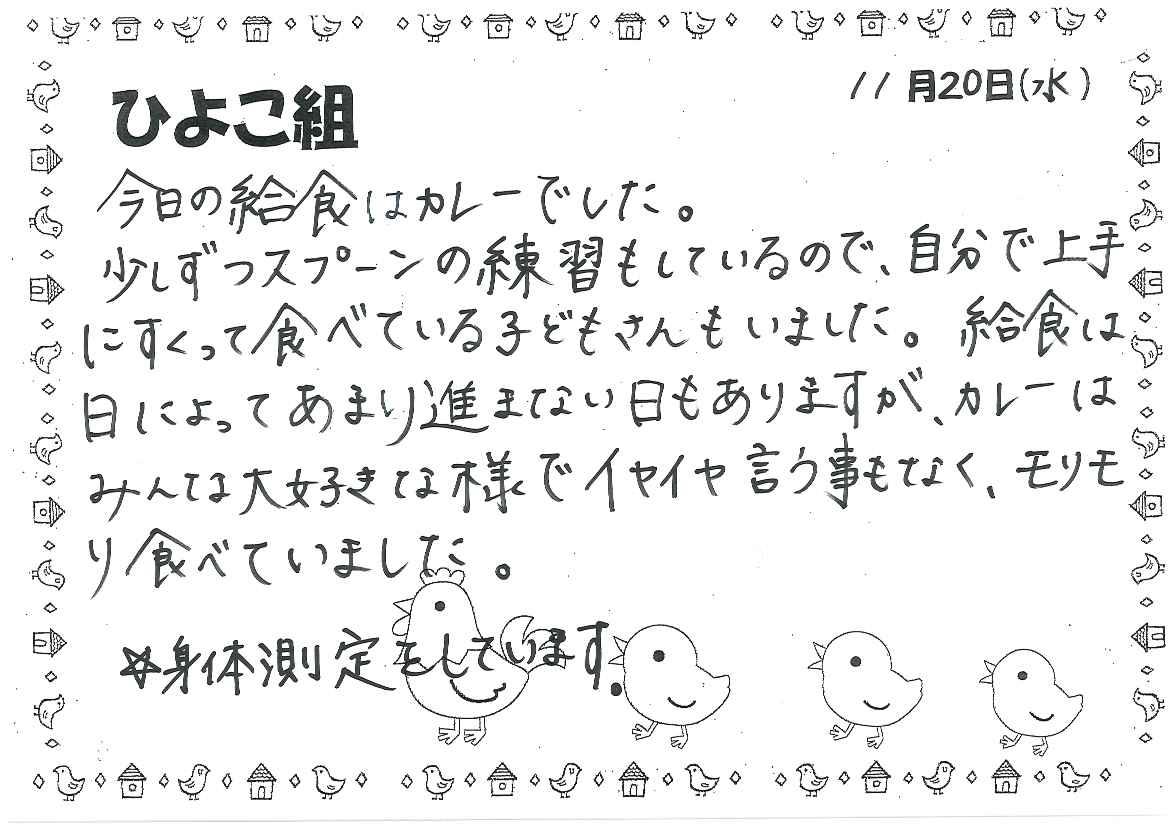 11月20日(水)
ひよこ組
今日の給食はカレーでした。
少しずつスプーンの練習もしているので、自分で上手
にすくって食べている子どもさんもいました。給食は
日によってあまり進まない日もありますが、カレーは
みんな大好きな様でイヤイヤ言う事もなく、モリモ
リ食べていました。
☆身体測定をしています。